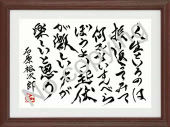 人生というのは
振り返ってみて
何もない
起伏
が激しい方が
楽しいと思う
石原裕次郎